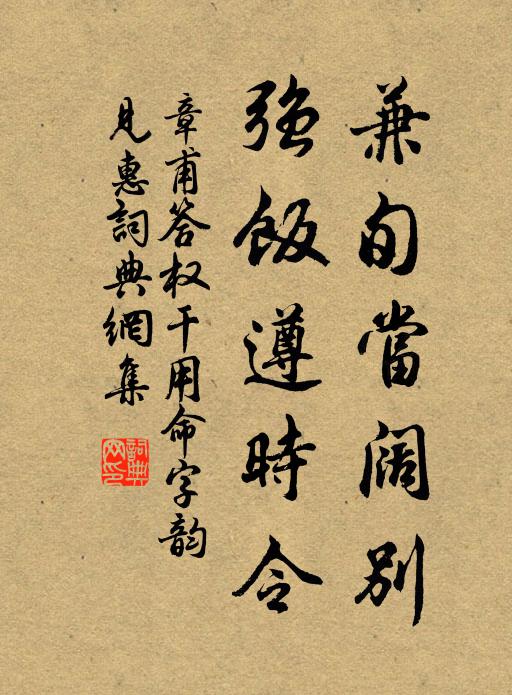 兼旬當闊別
强飯遵時令
章甫答权干用命字韵
見惠詞典網集
詞典網印